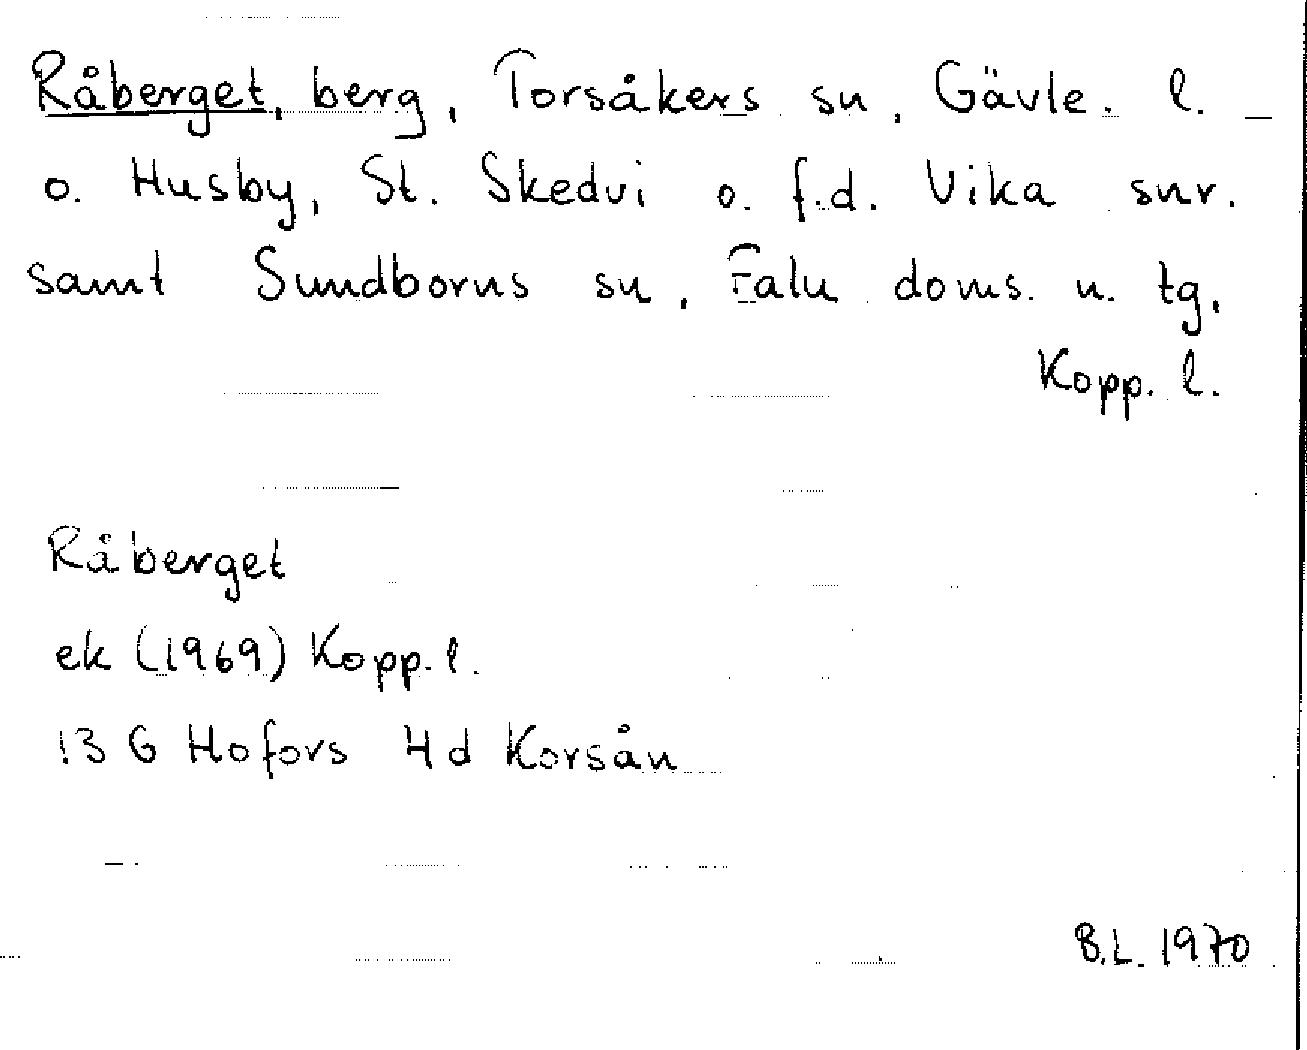 Råberget, berg, Torsåkers sn, Gävle. l.
o. Husby, St. Skedvi o. f.d. Vika snr.
samt Sundborns sn, Falu doms. n. tg.
Kopp. l.
Råberget
ek (1969) Kopp. l.
13 G Hofors 4 d Korsån
B.L. 1970